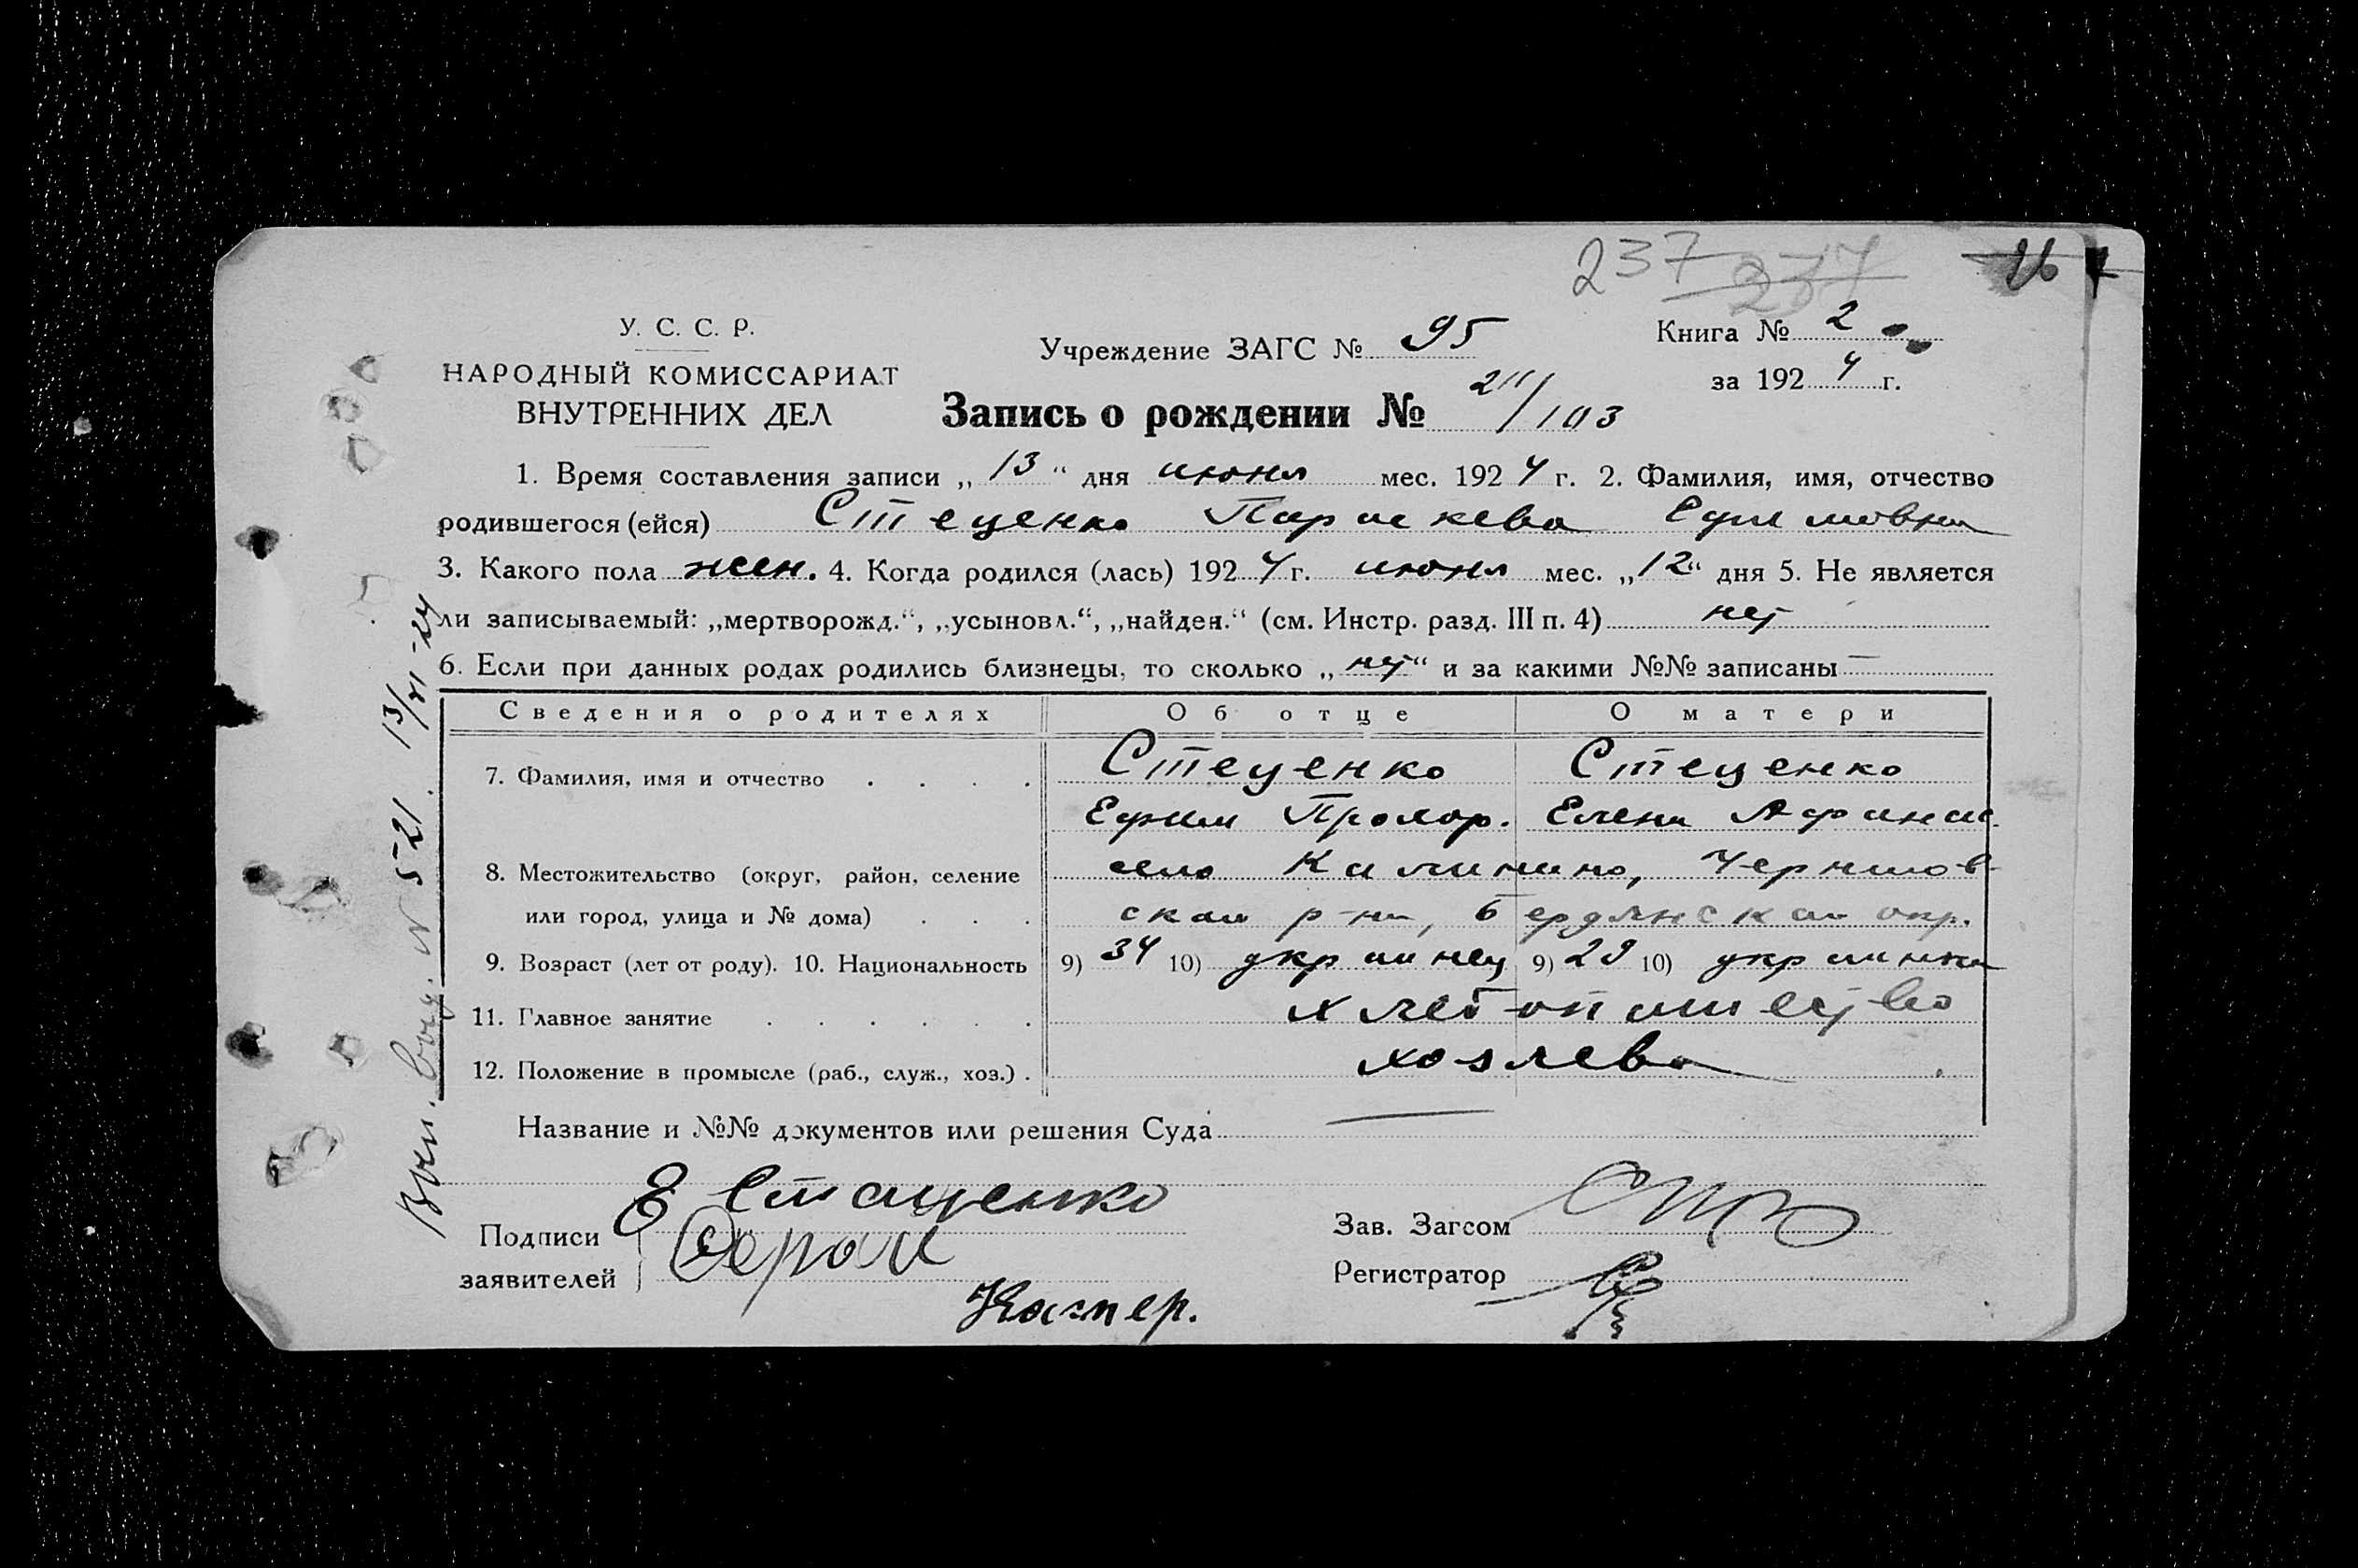 237 237 26
У. С. С. Р.
НАРОДНЫЙ КОМИССАРИАТ
ВНУТРЕННИХ ДЕЛ
Учреждение ЗАГС № 95
Книга № 2
за 1924 г.
Запись о рождении № 211/103
1. Время составления записи „13“ дня июня мес. 1924 г. 2. Фамилия, имя, отчество
родившегося (ейся) Стеценко Параскева Ефимовна
3. Какого пола жен. 4. Когда родился (лась) 1924 г. июня мес. „12“ дня 5. Не является
ли записываемый: „мертворожд.“, „усыновл.“, „найден.“ (см. Инстр. разд. III п. 4) нет
6. Если при данных родах родились близнецы, то сколько „нет“ и за какими №№ записаны —
Сведения о родителях Об отце О матери
7. Фамилия, имя и отчество . . . . Стеценко Стеценко
Ефим Прохор. Елена Афанас.
8. Местожительство (округ, район, селение село Калинино, Чернигов-
или город, улица и № дома) . . . ская р-на, Бердянская окр.
9. Возраст (лет от роду). 10. Национальность 9) 34 10) украинец 9) 29 10) украинка
11. Главное занятие . . . . . . хлебопашество
12. Положение в промысле (раб., служ., хоз.) . хозяева
Название и №№ документов или решения Суда —
Подписи заявителей Е Стаценко
Зав. Загсом
Регистратор
№ 521 13/VI-24